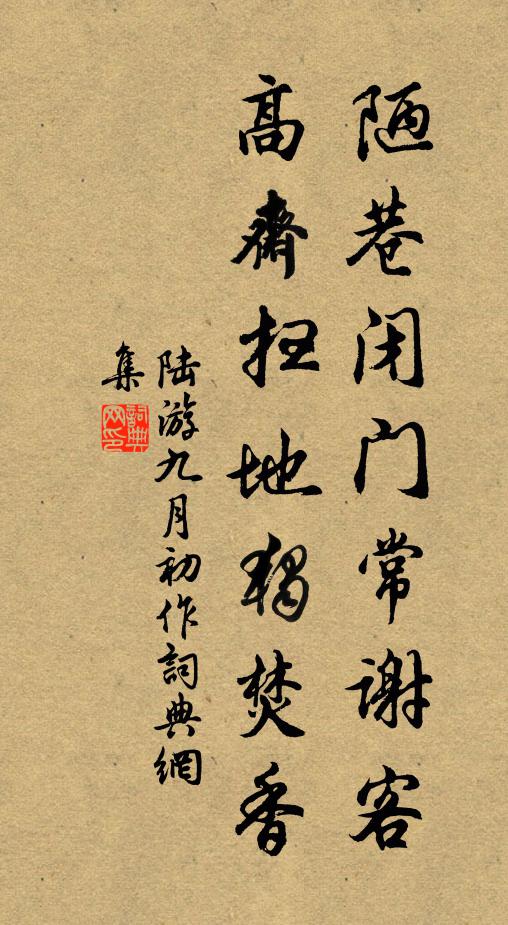 陋巷闭门常谢客
高齋扫地獨焚香
陆游九月初作詞典網
集
詞典
网印